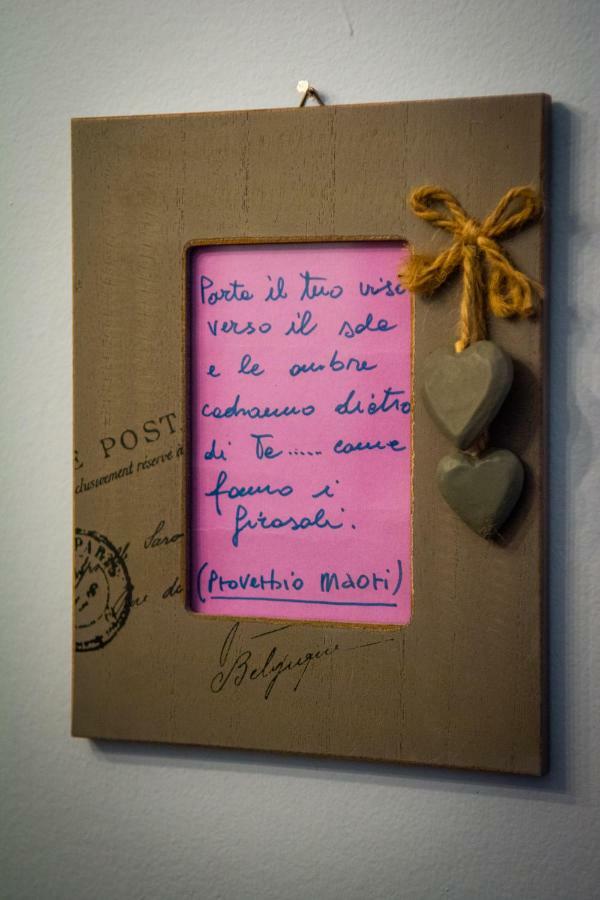 Porta il tuo viso
verso il sole
e le ombre
cadranno dietro
di Te..... come
fanno i
girasoli.
(Proverbio Maori)
E POST
clusivement réservé à
PARIS
Belgique